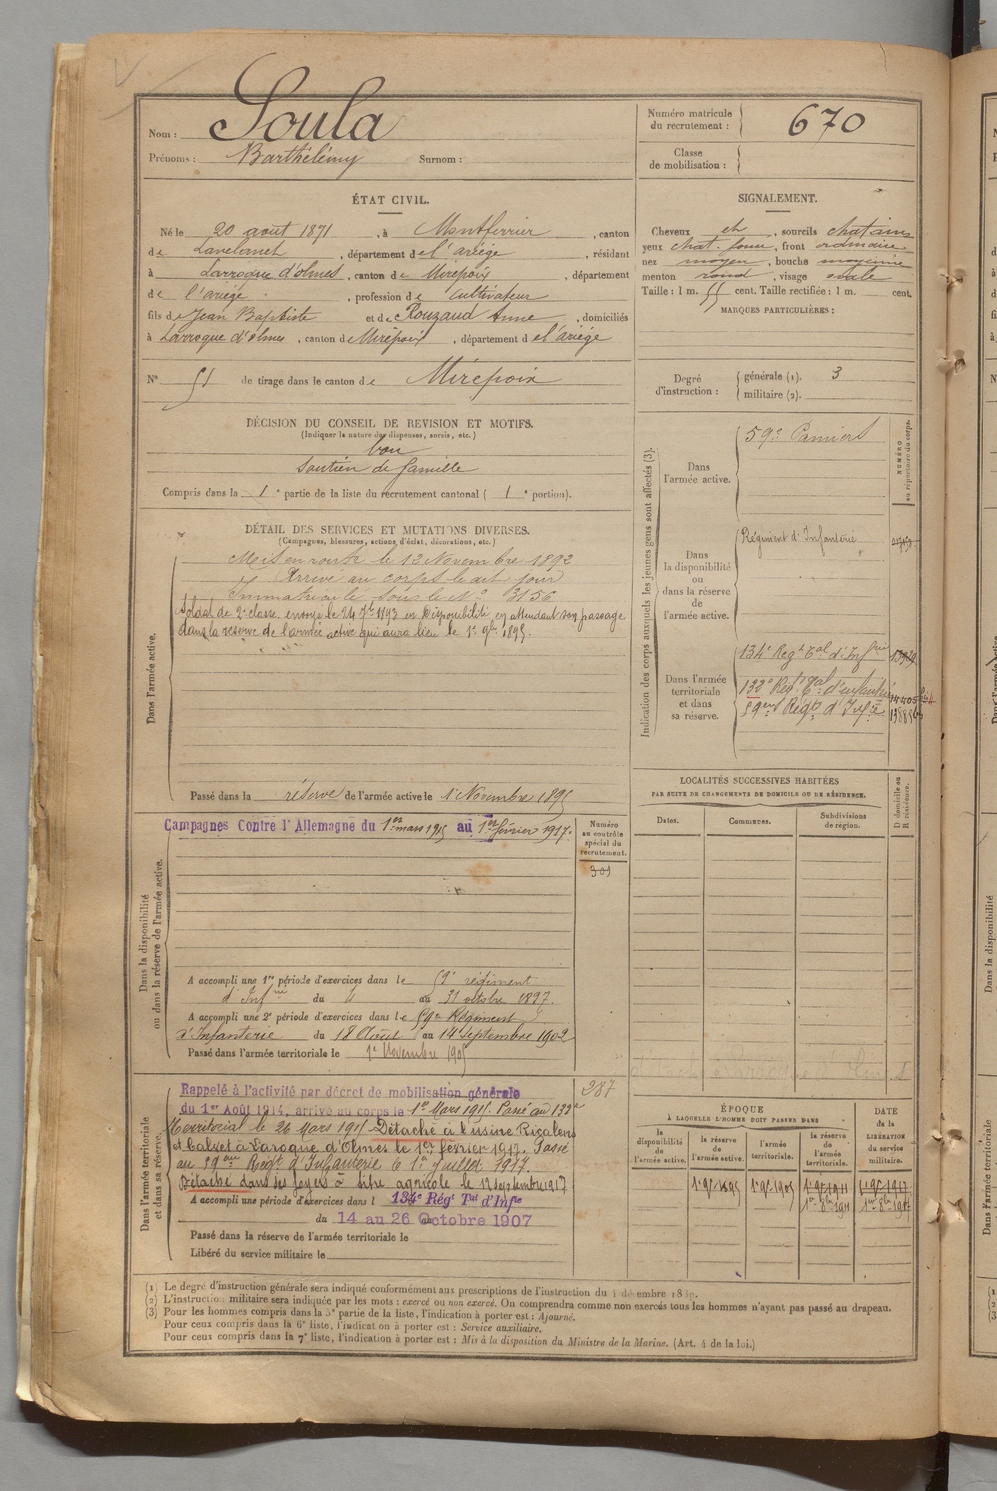 Nom : Soula
Prénoms : Barthélémy Surnom :
Numéro matricule du recrutement : 670
Classe de mobilisation :
ÉTAT CIVIL.
Né le 20 août 1871, à Montferrier, canton
de Lavelanet, département de l'ariége, résidant
à Larroque d'olmes, canton de Mirepoix, département
de l'ariége, profession de Cultivateur
fils de Jean Baptiste et de Rouzaud Anne, domiciliés
à Larroque d'olmes, canton de Mirepoix, département de l'ariége
N° 51 de tirage dans le canton de Mirepoix
SIGNALEMENT.
Cheveux ch, sourcils chatains
yeux chat. , front ordinaire
nez moyen, bouche moyenne
menton rond, visage ovale
Taille : 1 m. 55 cent. Taille rectifiée : 1 m. cent.
MARQUES PARTICULIÈRES :
Degré d'instruction : générale (1). 3
militaire (2).
DÉCISION DU CONSEIL DE REVISION ET MOTIFS.
(Indiquer la nature des dispenses, sursis, etc.)
bon
Soutien de famille
Compris dans la 1e partie de la liste du recrutement cantonal ( 1e portion).
DÉTAIL DES SERVICES ET MUTATIONS DIVERSES.
(Campagnes, blessures, actions d'éclat, décorations, etc.)
Dans l'armée active.
Mis en route le 12 Novembre 1892
Arrivé au corps le dit jour
Immatriculé sous le N° 3156
Soldat de 2e classe, envoyé le 24 7bre 1893 en Disponibilité en attendant son passage
dans la réserve de l'armée active qui aura lieu le 1er 9bre 1895.
Passé dans la réserve de l'armée active le 1er Novembre 1895
Indication des corps auxquels les jeunes gens sont affectés (3).
NUMÉRO au répertoire du corps.
Dans l'armée active.
59e Pamiers
Dans la disponibilité ou dans la réserve de l'armée active.
Régiment d'Infanterie
Dans l'armée territoriale et dans sa réserve.
134e Regt Tal d'Infrie
132e Regt Tal d'infanterie
59eme Regt d'Infie
LOCALITÉS SUCCESSIVES HABITÉES
PAR SUITE DE CHANGEMENTS DE DOMICILE OU DE RÉSIDENCE.
Dates. Communes. Subdivisions de région. D domicile ou R résidence.
Dans la disponibilité ou dans la réserve de l'armée active.
Campagnes Contre l'Allemagne du 1er mars 1915 au 1er février 1917.
Numéro au contrôle spécial du recrutement.
301
A accompli une 1re période d'exercices dans le 59e régiment
d'Infrie du 4 au 31 octobre 1897.
A accompli une 2e période d'exercices dans le 59e Régiment
d'Infanterie du 18 Août au 14 Septembre 1902
Passé dans l'armée territoriale le 1er Novembre 1905
Dans l'armée territoriale et dans sa réserve.
Rappelé à l'activité par décret de mobilisation générale
du 1er Août 1914, arrivé au corps le 1er Mars 1915. Passé au 132e
Territorial le 26 Mars 1915 Détaché à l'usine Ricalens
et Calvet à Laroque d'Olmes le 1er février 1917. Passé
au 59eme Regt d'Infanterie le 1er Juillet 1917.
Détaché dans ses foyers à titre agricole le 12 septembre 1917
A accompli une période d'exercices dans l 134e Régt Tal d'Infie
du 14 au 26 Octobre 1907
Passé dans la réserve de l'armée territoriale le
Libéré du service militaire le
287
ÉPOQUE
À LAQUELLE L'HOMME DOIT PASSER DANS
la disponibilité de l'armée active.
la réserve de l'armée active.
l'armée territoriale.
la réserve de l'armée territoriale.
DATE de la LIBÉRATION du service militaire.
1er 9bre 1895 1er 9bre 1905 1er 9bre 1911 1er 9bre 1917
1er 8bre 1911 1er 8bre 1917
(1) Le degré d'instruction générale sera indiqué conformément aux prescriptions de l'instruction du 4 décembre 1889.
(2) L'instruction militaire sera indiquée par les mots : exercé ou non exercé. On comprendra comme non exercés tous les hommes n'ayant pas passé au drapeau.
(3) Pour les hommes compris dans la 5e partie de la liste, l'indication à porter est : Ajourné.
Pour ceux compris dans la 6e liste, l'indication à porter est : Service auxiliaire.
Pour ceux compris dans la 7e liste, l'indication à porter est : Mis à la disposition du Ministre de la Marine. (Art. 4 de la loi.)